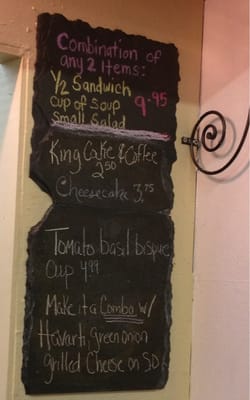 Combination of
any 2 Items:
½ Sandwich
cup of soup 9.95
Small Salad
King Cake & Coffee
2.50
Cheesecake 3.75
Tomato basil bisque
Cup 4.99
Make it a Combo w/
Havarti, green onion
grilled Cheese on SD